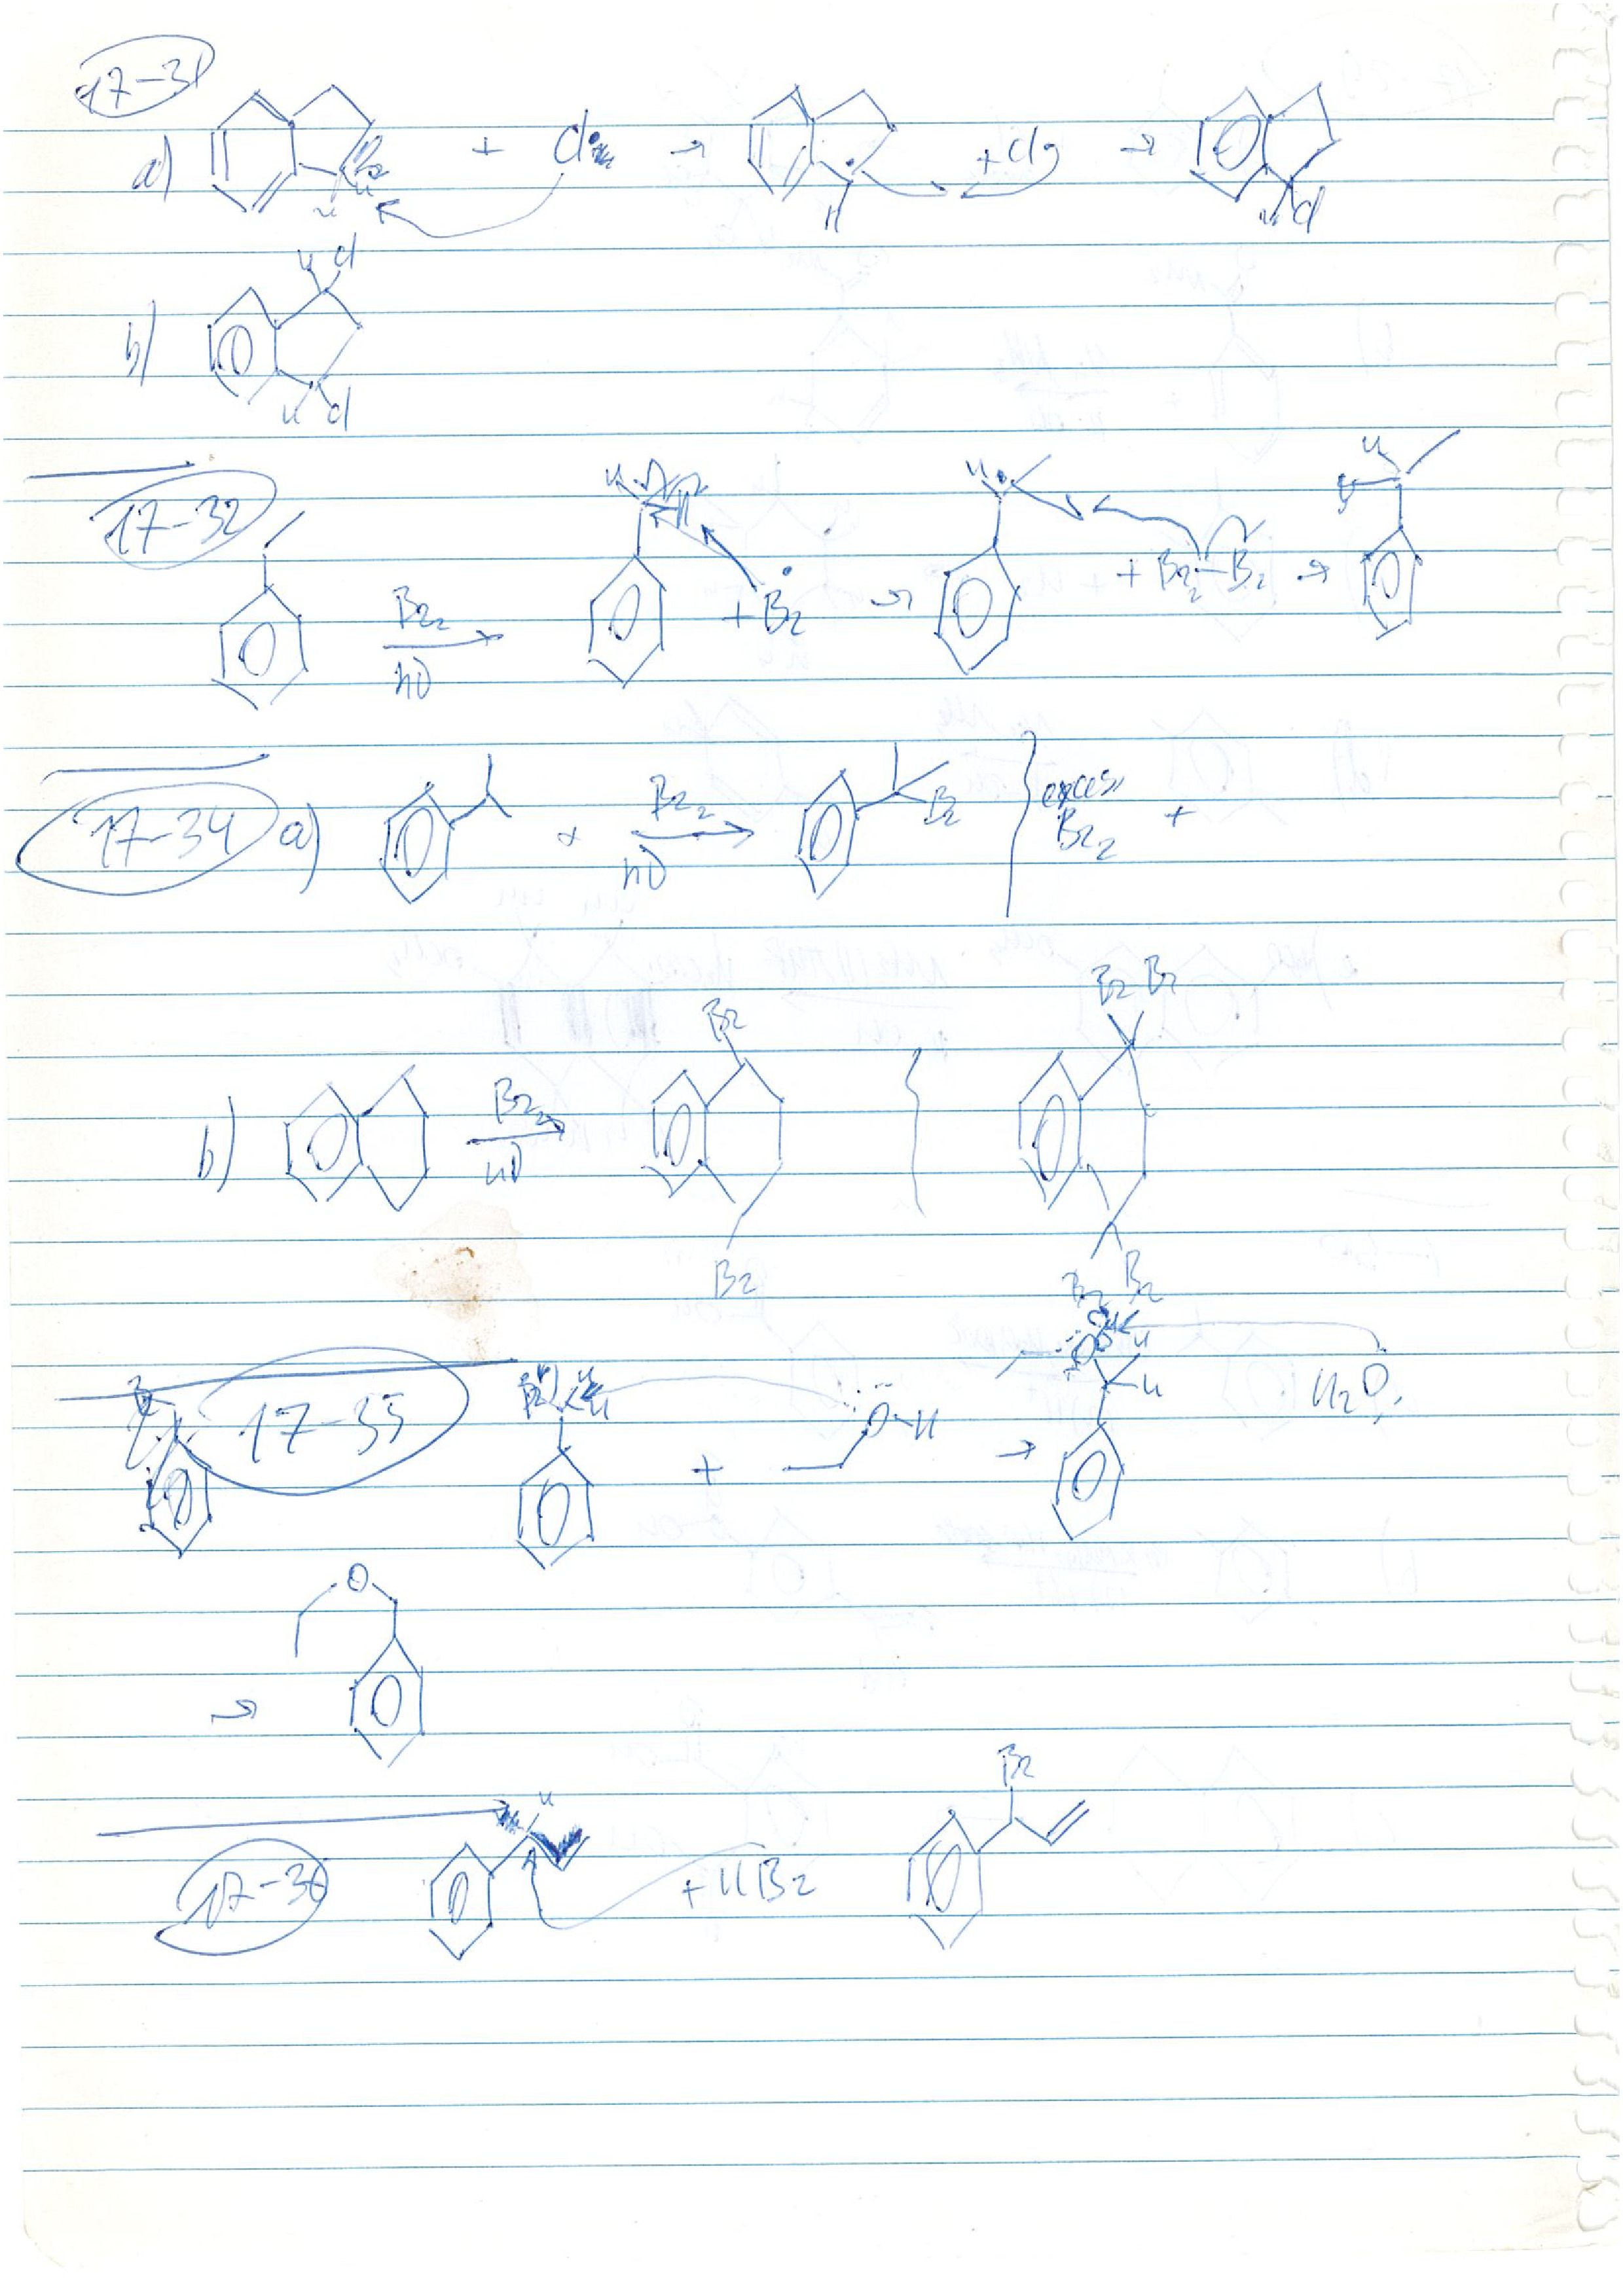 17-31
a) H H + Cl• → H + Cl2 → H Cl
b) H Cl
H Cl
17-32
Br2
hν
H + Br• → H + Br-Br → H
Br
17-34 a) + Br2
hν
Br } excess
Br2 +
b) Br2
hν
Br
Br
Br Br
Br Br
17-35
H + O-H → O H H H2O
→ O
17-36 H + HBr Br